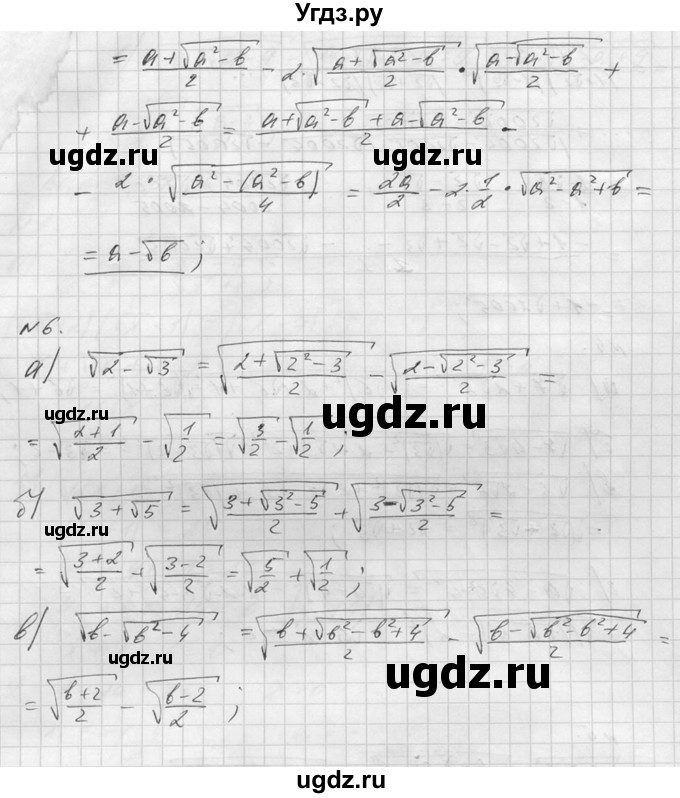 Угдз.ру
= (a + √(a² − b))/2 − 2·√((a + √(a² − b))/2) · √((a − √(a² − b))/2) +
+ (a − √(a² − b))/2 = (a + √(a² − b) + a − √(a² − b))/2 −
ugdz.ru ugdz.ru
− 2 · √((a² − (a² − b))/4) = 2a/2 − 2·1/2 · √(a² − a² + b) =
= a − √b ;
№6.
а) √(2 − √3) = √((2 + √(2² − 3))/2) − √((2 − √(2² − 3))/2) =
ugdz.ru ugdz.ru
= √((2+1)/2) − √(1/2) = √(3/2) − √(1/2) ;
б) √(3 + √5) = √((3 + √(3² − 5))/2) + √((3 − √(3² − 5))/2) =
ugdz.ru
= √((3+2)/2) + √((3−2)/2) = √(5/2) + √(1/2) ;
в) √(b − √(b² − 4)) = √((b + √(b² − b² + 4))/2) − √((b − √(b² − b² + 4))/2) =
ugdz.ru ugdz.ru
= √((b+2)/2) − √((b−2)/2) ;
ugdz.ru